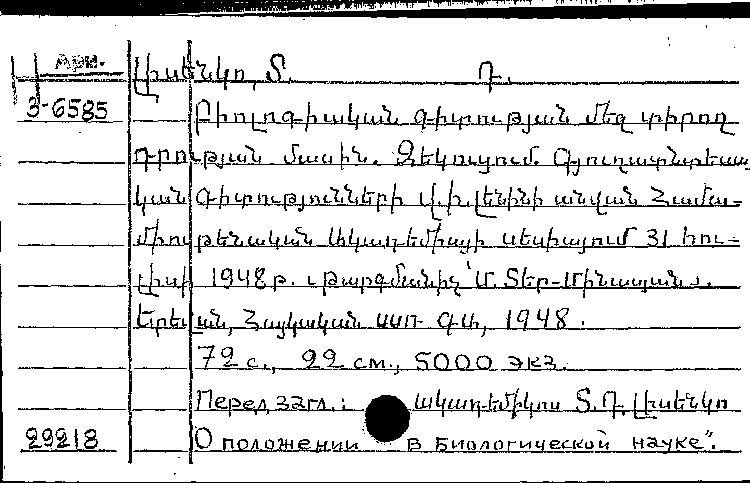 Арм.
Լիսենկո, Տ. Դ.
3-6585
Բիոլոգիական գիտության մեջ տիրող
դրության մասին. Զեկուցում Գյուղատնտեսա
կան գիտությունների Վ.Ի.Լենինի անվան Համա-
միութենական Ակադեմիայի սեսիայում 31 հու-
լիսի 1948թ. Թարգմանիչ Մ. Տեր-Մինասյան.
Երևան, Հայկական ՍՍՌ ԳԱ, 1948.
72 с., 22 см., 5000 экз.
Перед загл.: ակադեմիկոս Տ.Դ. Լիսենկո
29218
О положении в биологической науке".